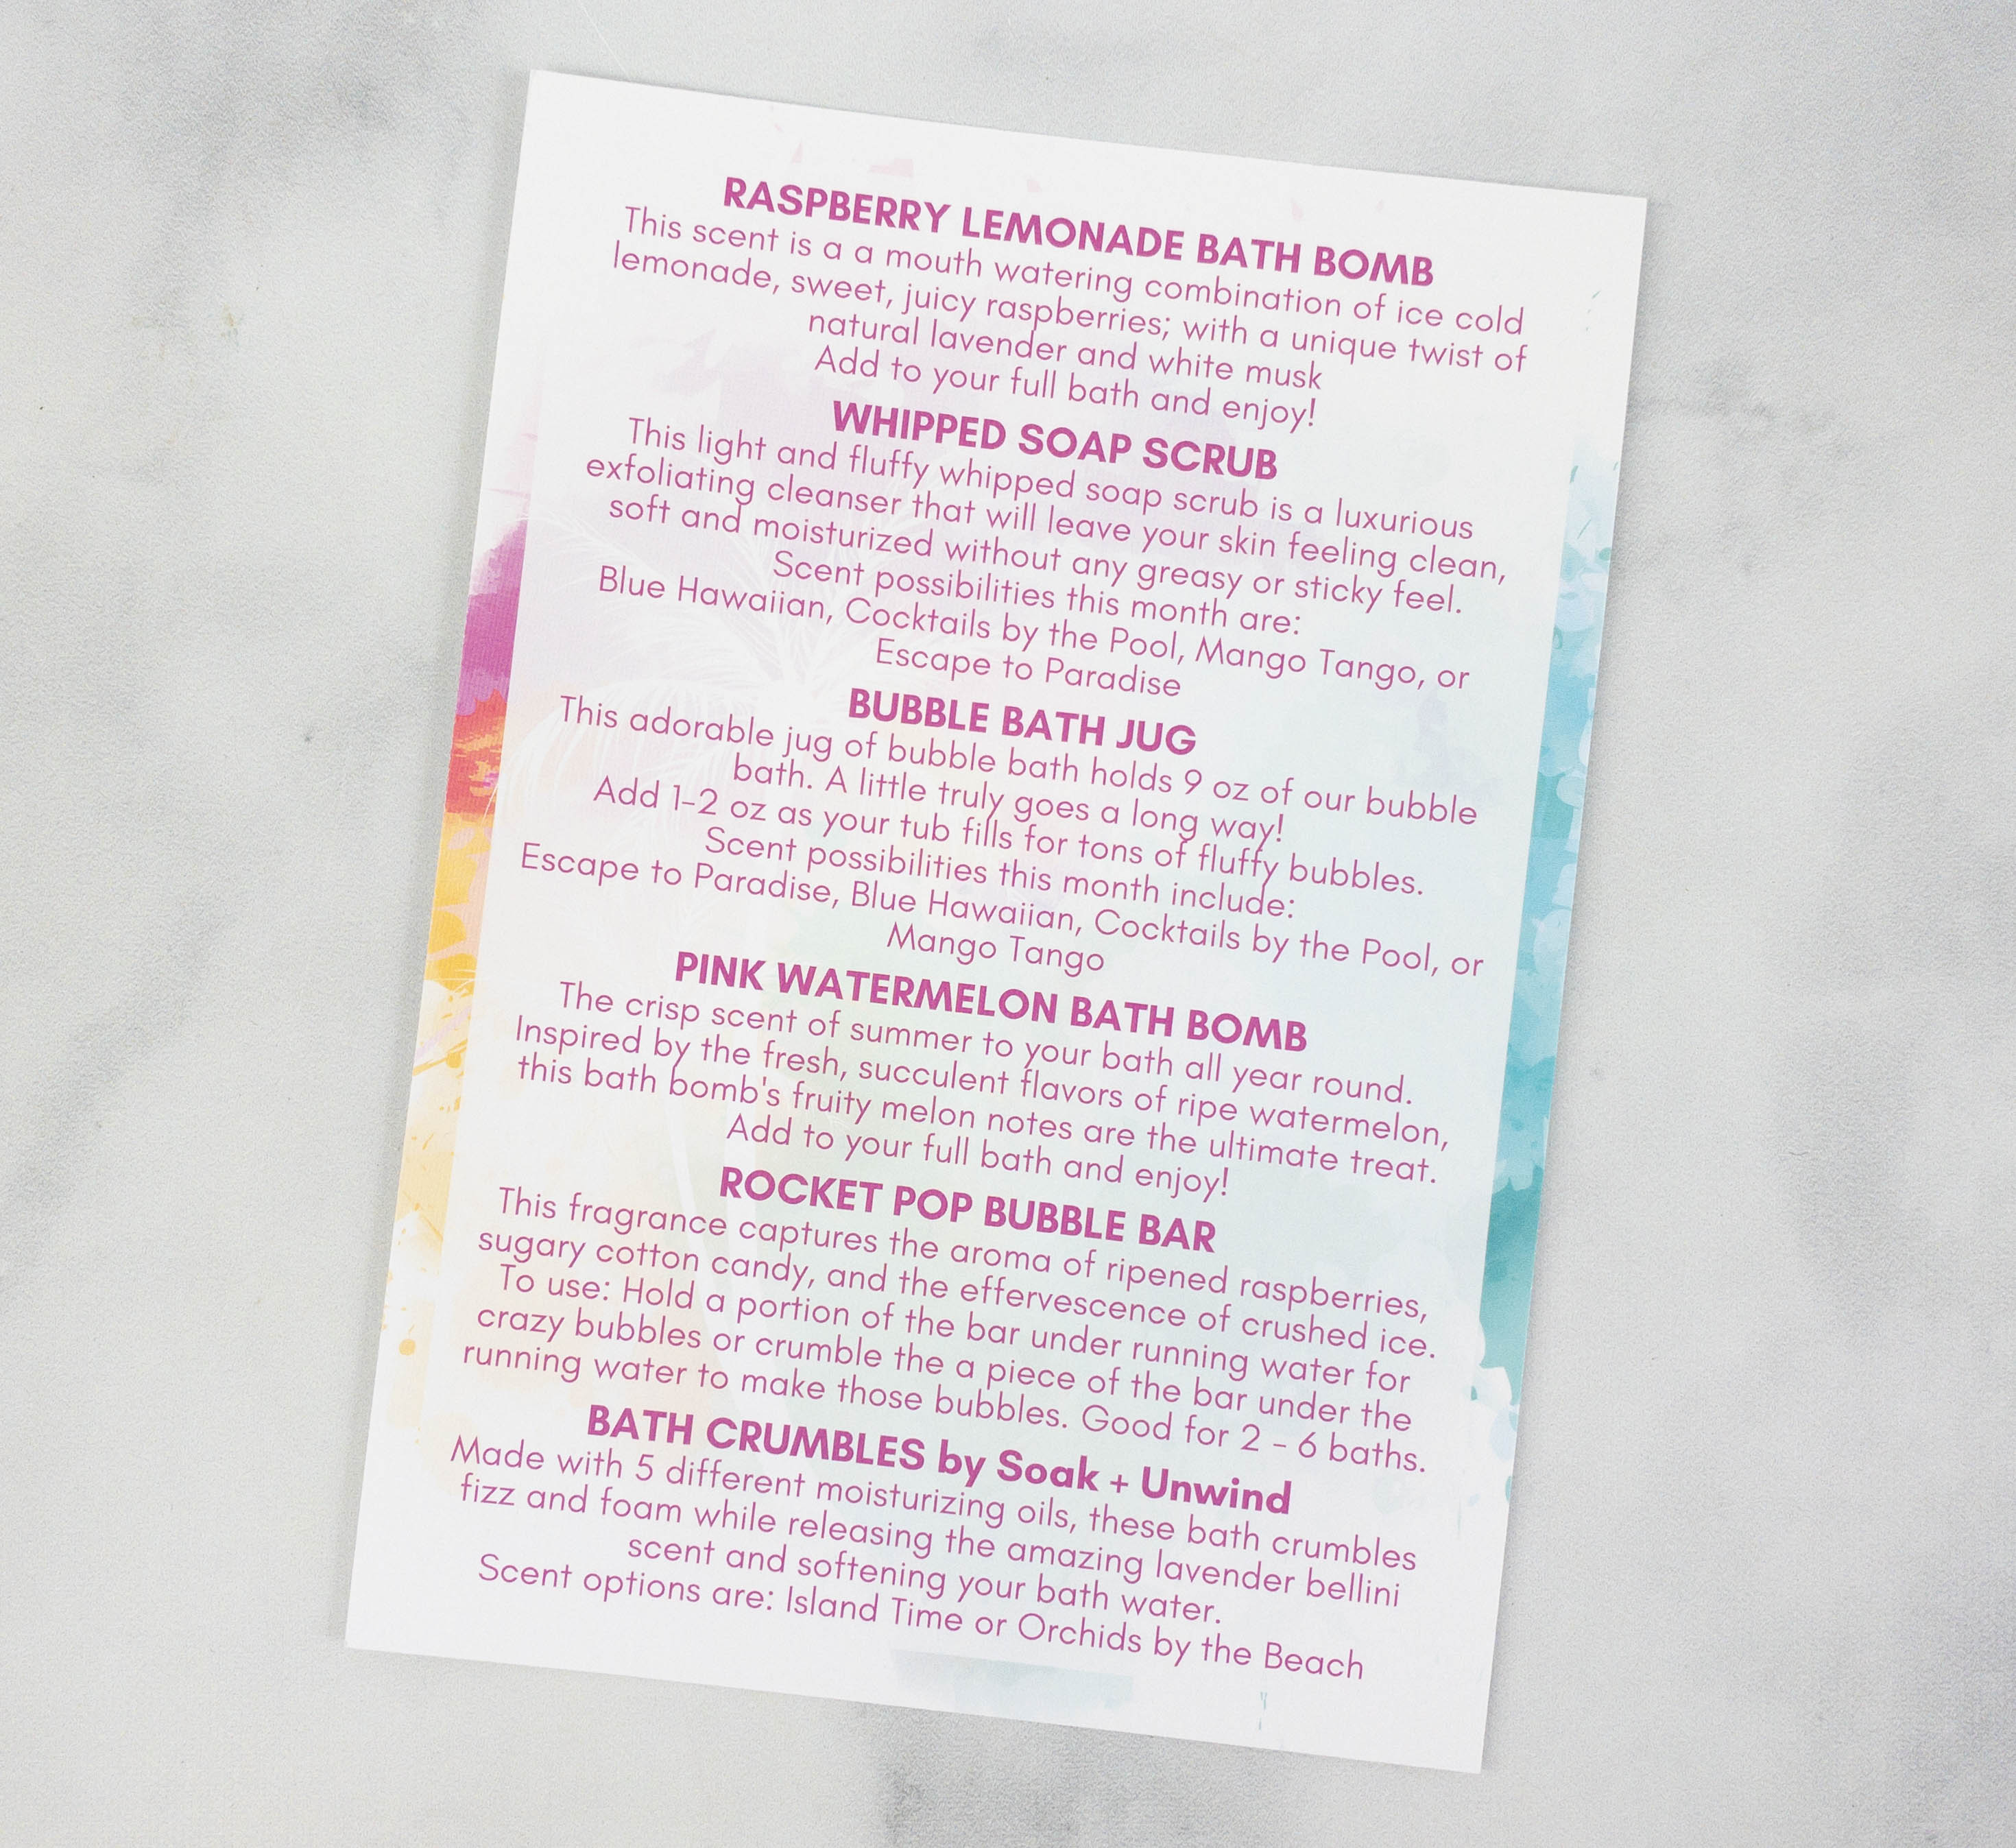 RASPBERRY LEMONADE BATH BOMB
This scent is a a mouth watering combination of ice cold
lemonade, sweet, juicy raspberries; with a unique twist of
natural lavender and white musk
Add to your full bath and enjoy!
WHIPPED SOAP SCRUB
This light and fluffy whipped soap scrub is a luxurious
exfoliating cleanser that will leave your skin feeling clean,
soft and moisturized without any greasy or sticky feel.
Scent possibilities this month are:
Blue Hawaiian, Cocktails by the Pool, Mango Tango, or
Escape to Paradise
BUBBLE BATH JUG
This adorable jug of bubble bath holds 9 oz of our bubble
bath. A little truly goes a long way!
Add 1-2 oz as your tub fills for tons of fluffy bubbles.
Scent possibilities this month include:
Escape to Paradise, Blue Hawaiian, Cocktails by the Pool, or
Mango Tango
PINK WATERMELON BATH BOMB
The crisp scent of summer to your bath all year round.
Inspired by the fresh, succulent flavors of ripe watermelon,
this bath bomb's fruity melon notes are the ultimate treat.
Add to your full bath and enjoy!
ROCKET POP BUBBLE BAR
This fragrance captures the aroma of ripened raspberries,
sugary cotton candy, and the effervescence of crushed ice.
To use: Hold a portion of the bar under running water for
crazy bubbles or crumble the a piece of the bar under the
running water to make those bubbles. Good for 2 - 6 baths.
BATH CRUMBLES by Soak + Unwind
Made with 5 different moisturizing oils, these bath crumbles
fizz and foam while releasing the amazing lavender bellini
scent and softening your bath water.
Scent options are: Island Time or Orchids by the Beach